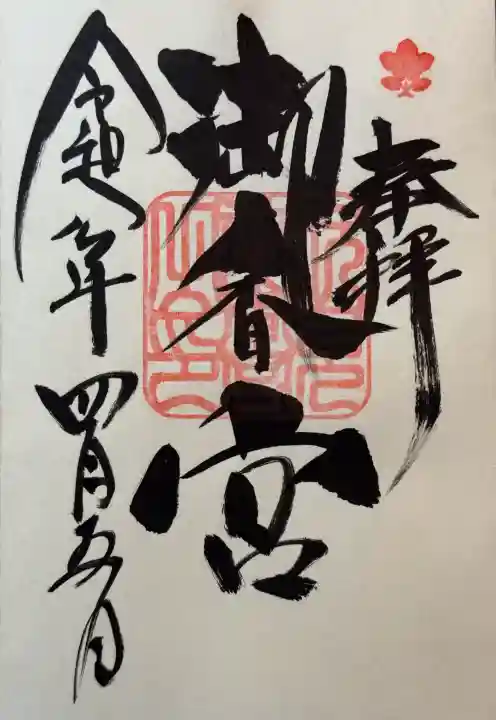 奉拝
御香宮
令和 年四月五日